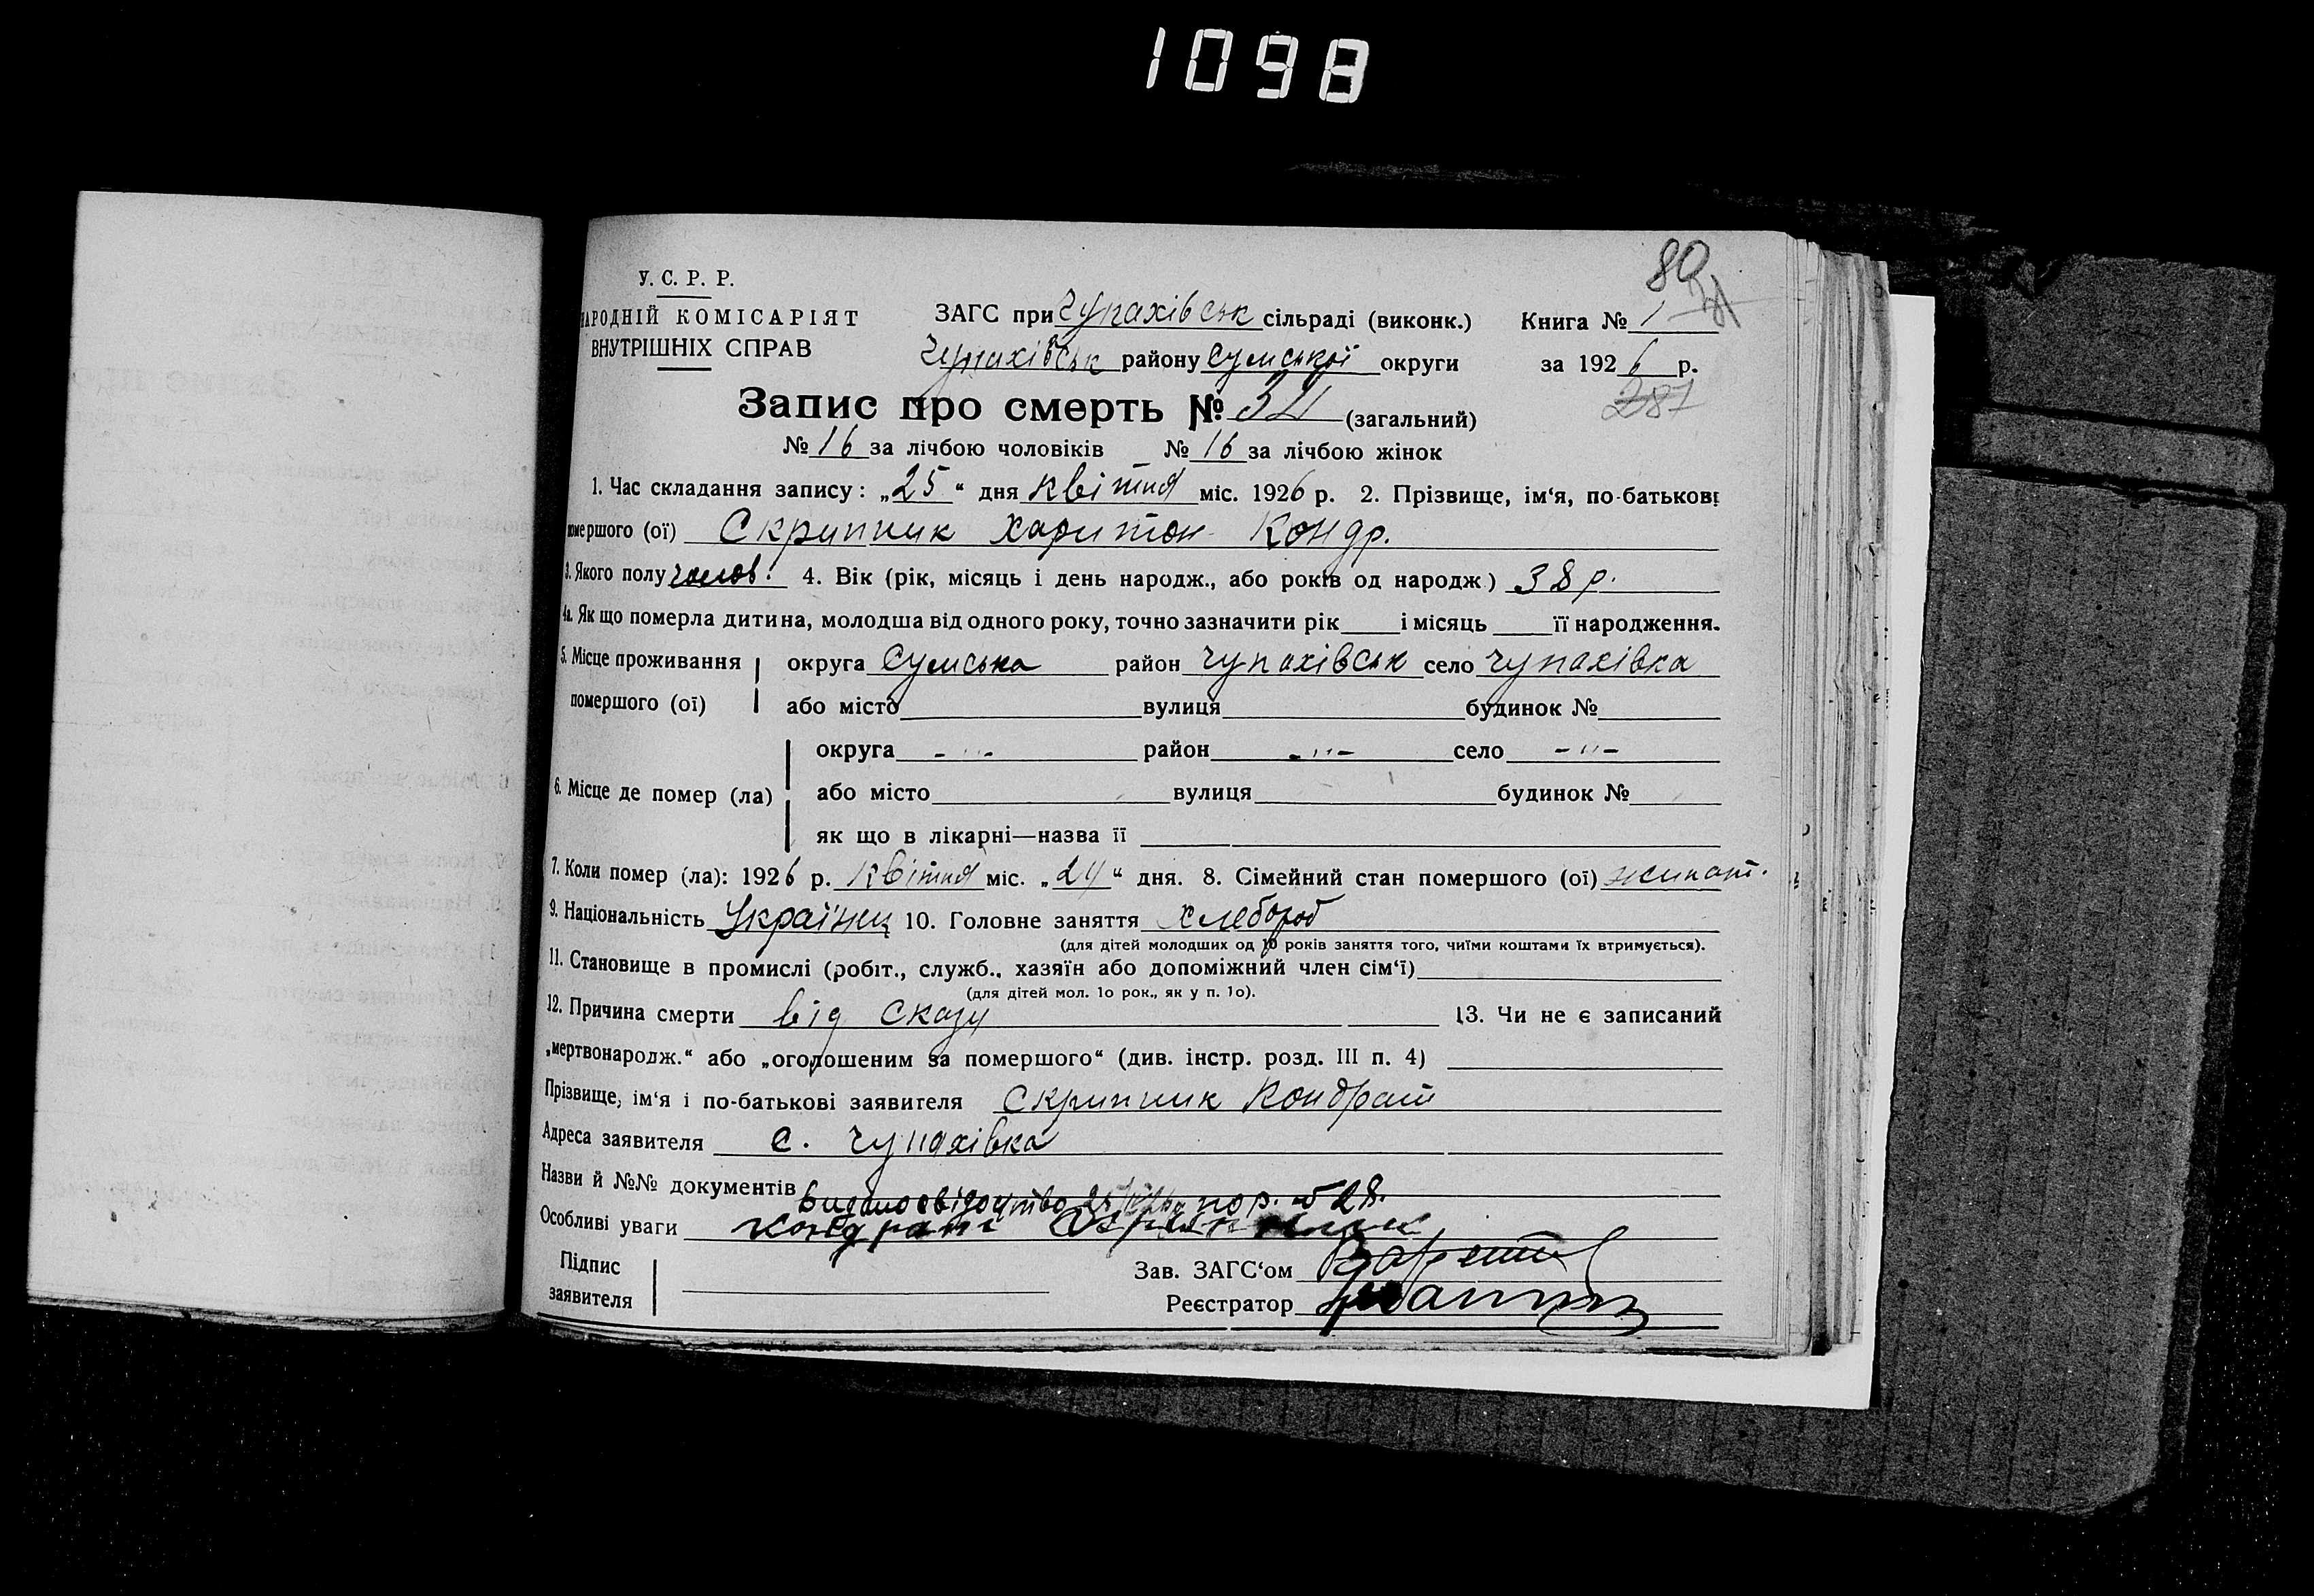 1098
80
У.С.Р.Р.
НАРОДНІЙ КОМІСАРІЯТ
ВНУТРІШНІХ СПРАВ
ЗАГС при Чупахівськ сільраді (виконк.) Книга № 1
Чупахівськ району Сумської округи за 1926 р.
287
Запис про смерть № (загальний)
№ 16 за лічбою чоловіків № 16 за лічбою жінок
1. Час складання запису: „25“ дня квітня міс. 1926 р. 2. Прізвище, ім‘я, по-батькові
помершого (ої) Скрипник Харитон Кондр.
3. Якого полу чолов. 4. Вік (рік, місяць і день народж., або років од народж) 38 р.
4а. Як що померла дитина, молодша від одного року, точно зазначити рік і місяць її народження.
5. Місце проживання округа Сумська район Чупахівськ село Чупахівка
помершого (ої) або місто вулиця будинок №
округа -"- район -"- село -"-
6. Місце де помер (ла) або місто вулиця будинок №
як що в лікарні—назва її
7. Коли помер (ла): 1926 р. квітня міс. „24“ дня. 8. Сімейний стан помершого (ої) жинат.
9. Національність Українец 10. Головне заняття хлебороб
(для дітей молодших од 10 років заняття того, чиїми коштами їх втримується).
11. Становище в промислі (робіт., служб., хазяїн або допоміжний член сім‘ї)
(для дітей мол. 1о рок., як у п. 1о).
12. Причина смерти від сказу 13. Чи не є записаний
„мертвонародж.“ або „оголошеним за помершого“ (див. інстр. розд. III п. 4)
Прізвище, ім‘я і по-батькові заявителя Скрипник Кондрат
Адреса заявителя с. Чупахівка
Назви й №№ документів
видано свідоцтво по р. № 28.
Особливі уваги Кондрат Скрипник
Підпис
заявителя
Зав. ЗАГС‘ом
Реєстратор